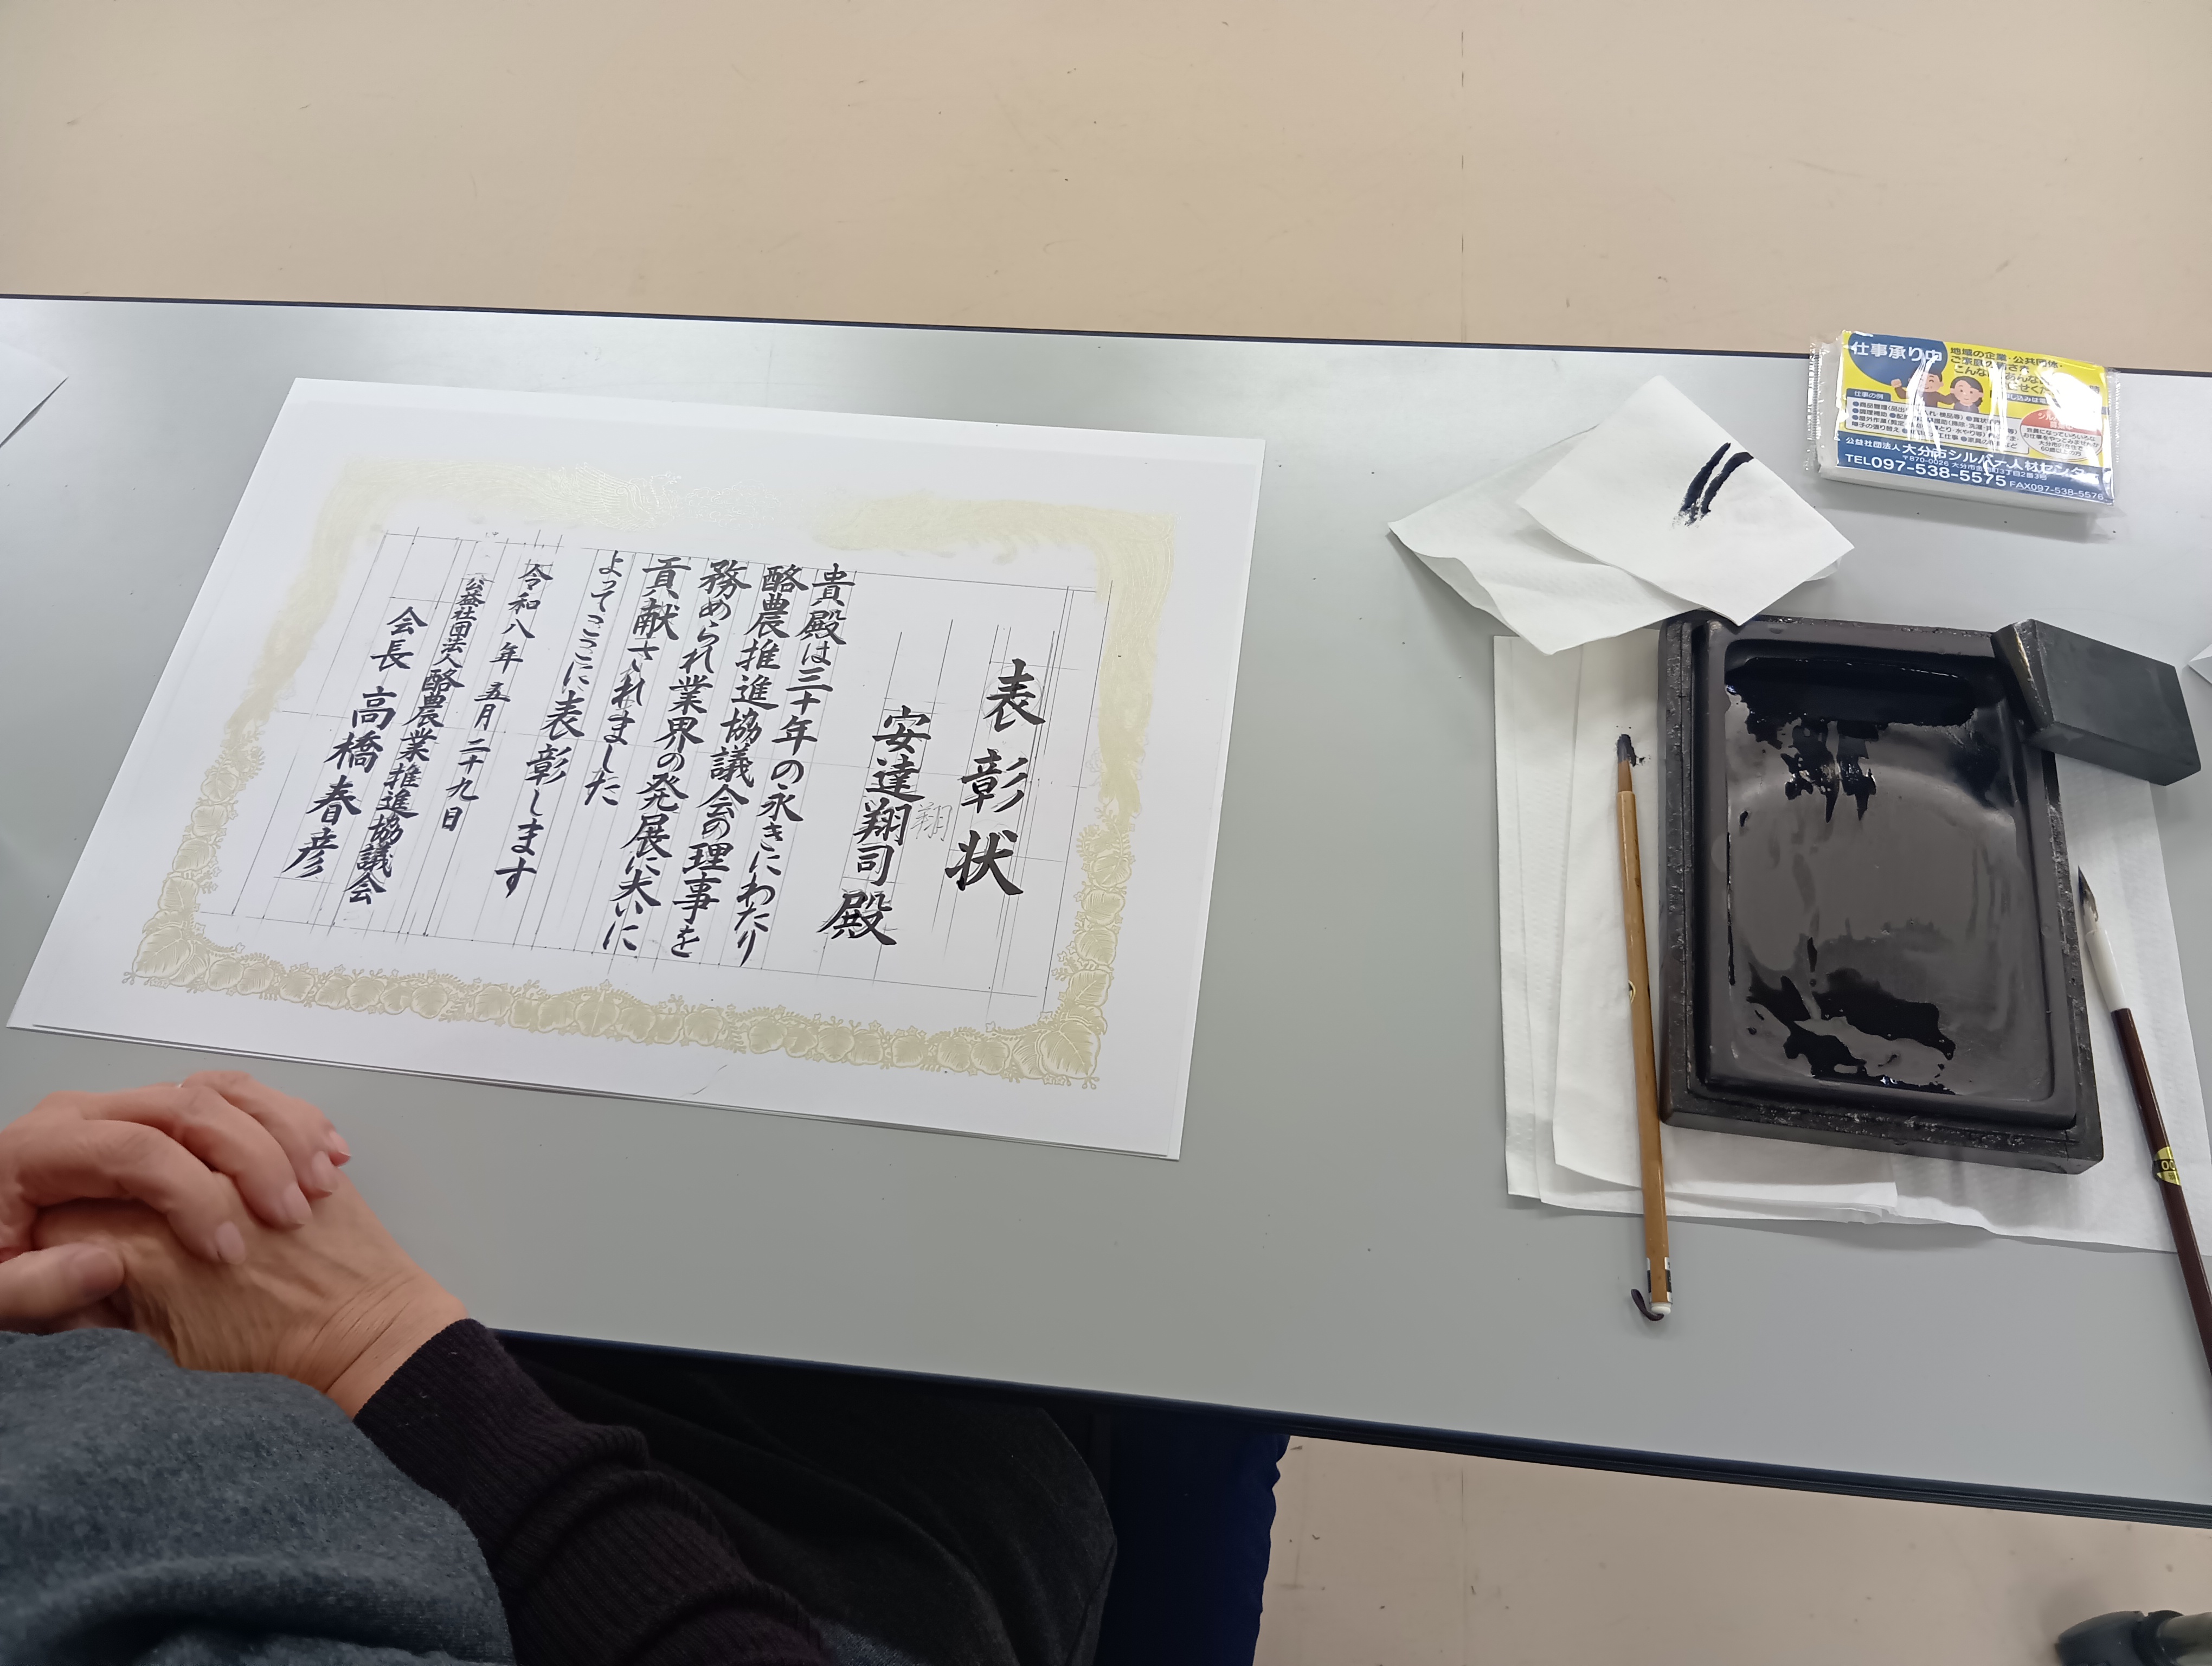 表彰状
安達翔司殿
翔
貴殿は三十年の永きにわたり
酪農推進協議会の理事を
務められ業界の発展に大いに
貢献されました
よってここに表彰します
令和八年五月二十九日
公益社団法人酪農業推進協議会
会長高橋春彦
仕事承り中
地域の企業・公共団体・
仕事の例
公益社団法人大分市シルバー人材センター
〒870-0026
TEL097-538-5575 FAX097-538-5576
00